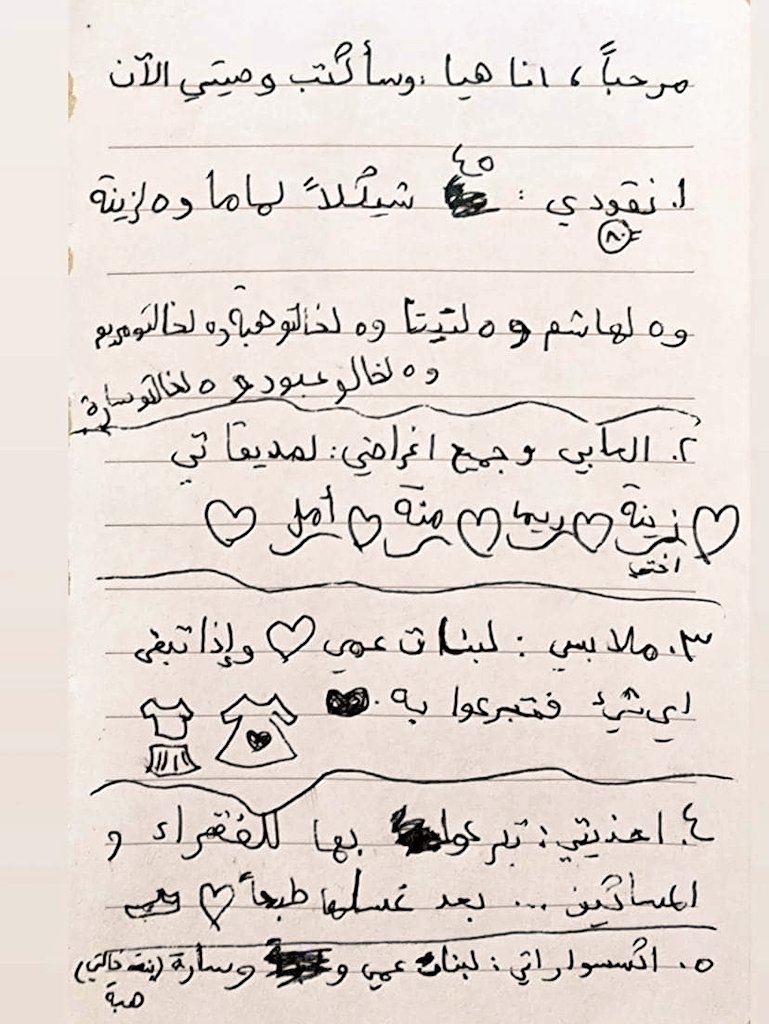 مرحباً ، انا هيا ،وسأكتب وصيتي الآن
١. نقودي : ٤٥ شيكلاً لماما و٥ لزينة
٨٠
و٥ لهاشم و ٥ لتيتا و٥ لخالتو هبة و٥ لخالتو مريم
و ٥ لخالو عبود و ٥ لخالتو سارة
٢. العابي وجميع اغراضي: لصديقاتي
زينة ريما منة أمل
اختي
٣. ملابسي : لبنات عمي وإذا تبقى
اي شيء فتبرعوا به.
٤. احذيتي: تبرعوا بها للفقراء و
المساكين ... بعد غسلها طبعاً
٥. اكسسواراتي: لبنات عمي و وسارة (بنت خالتي)
هبة